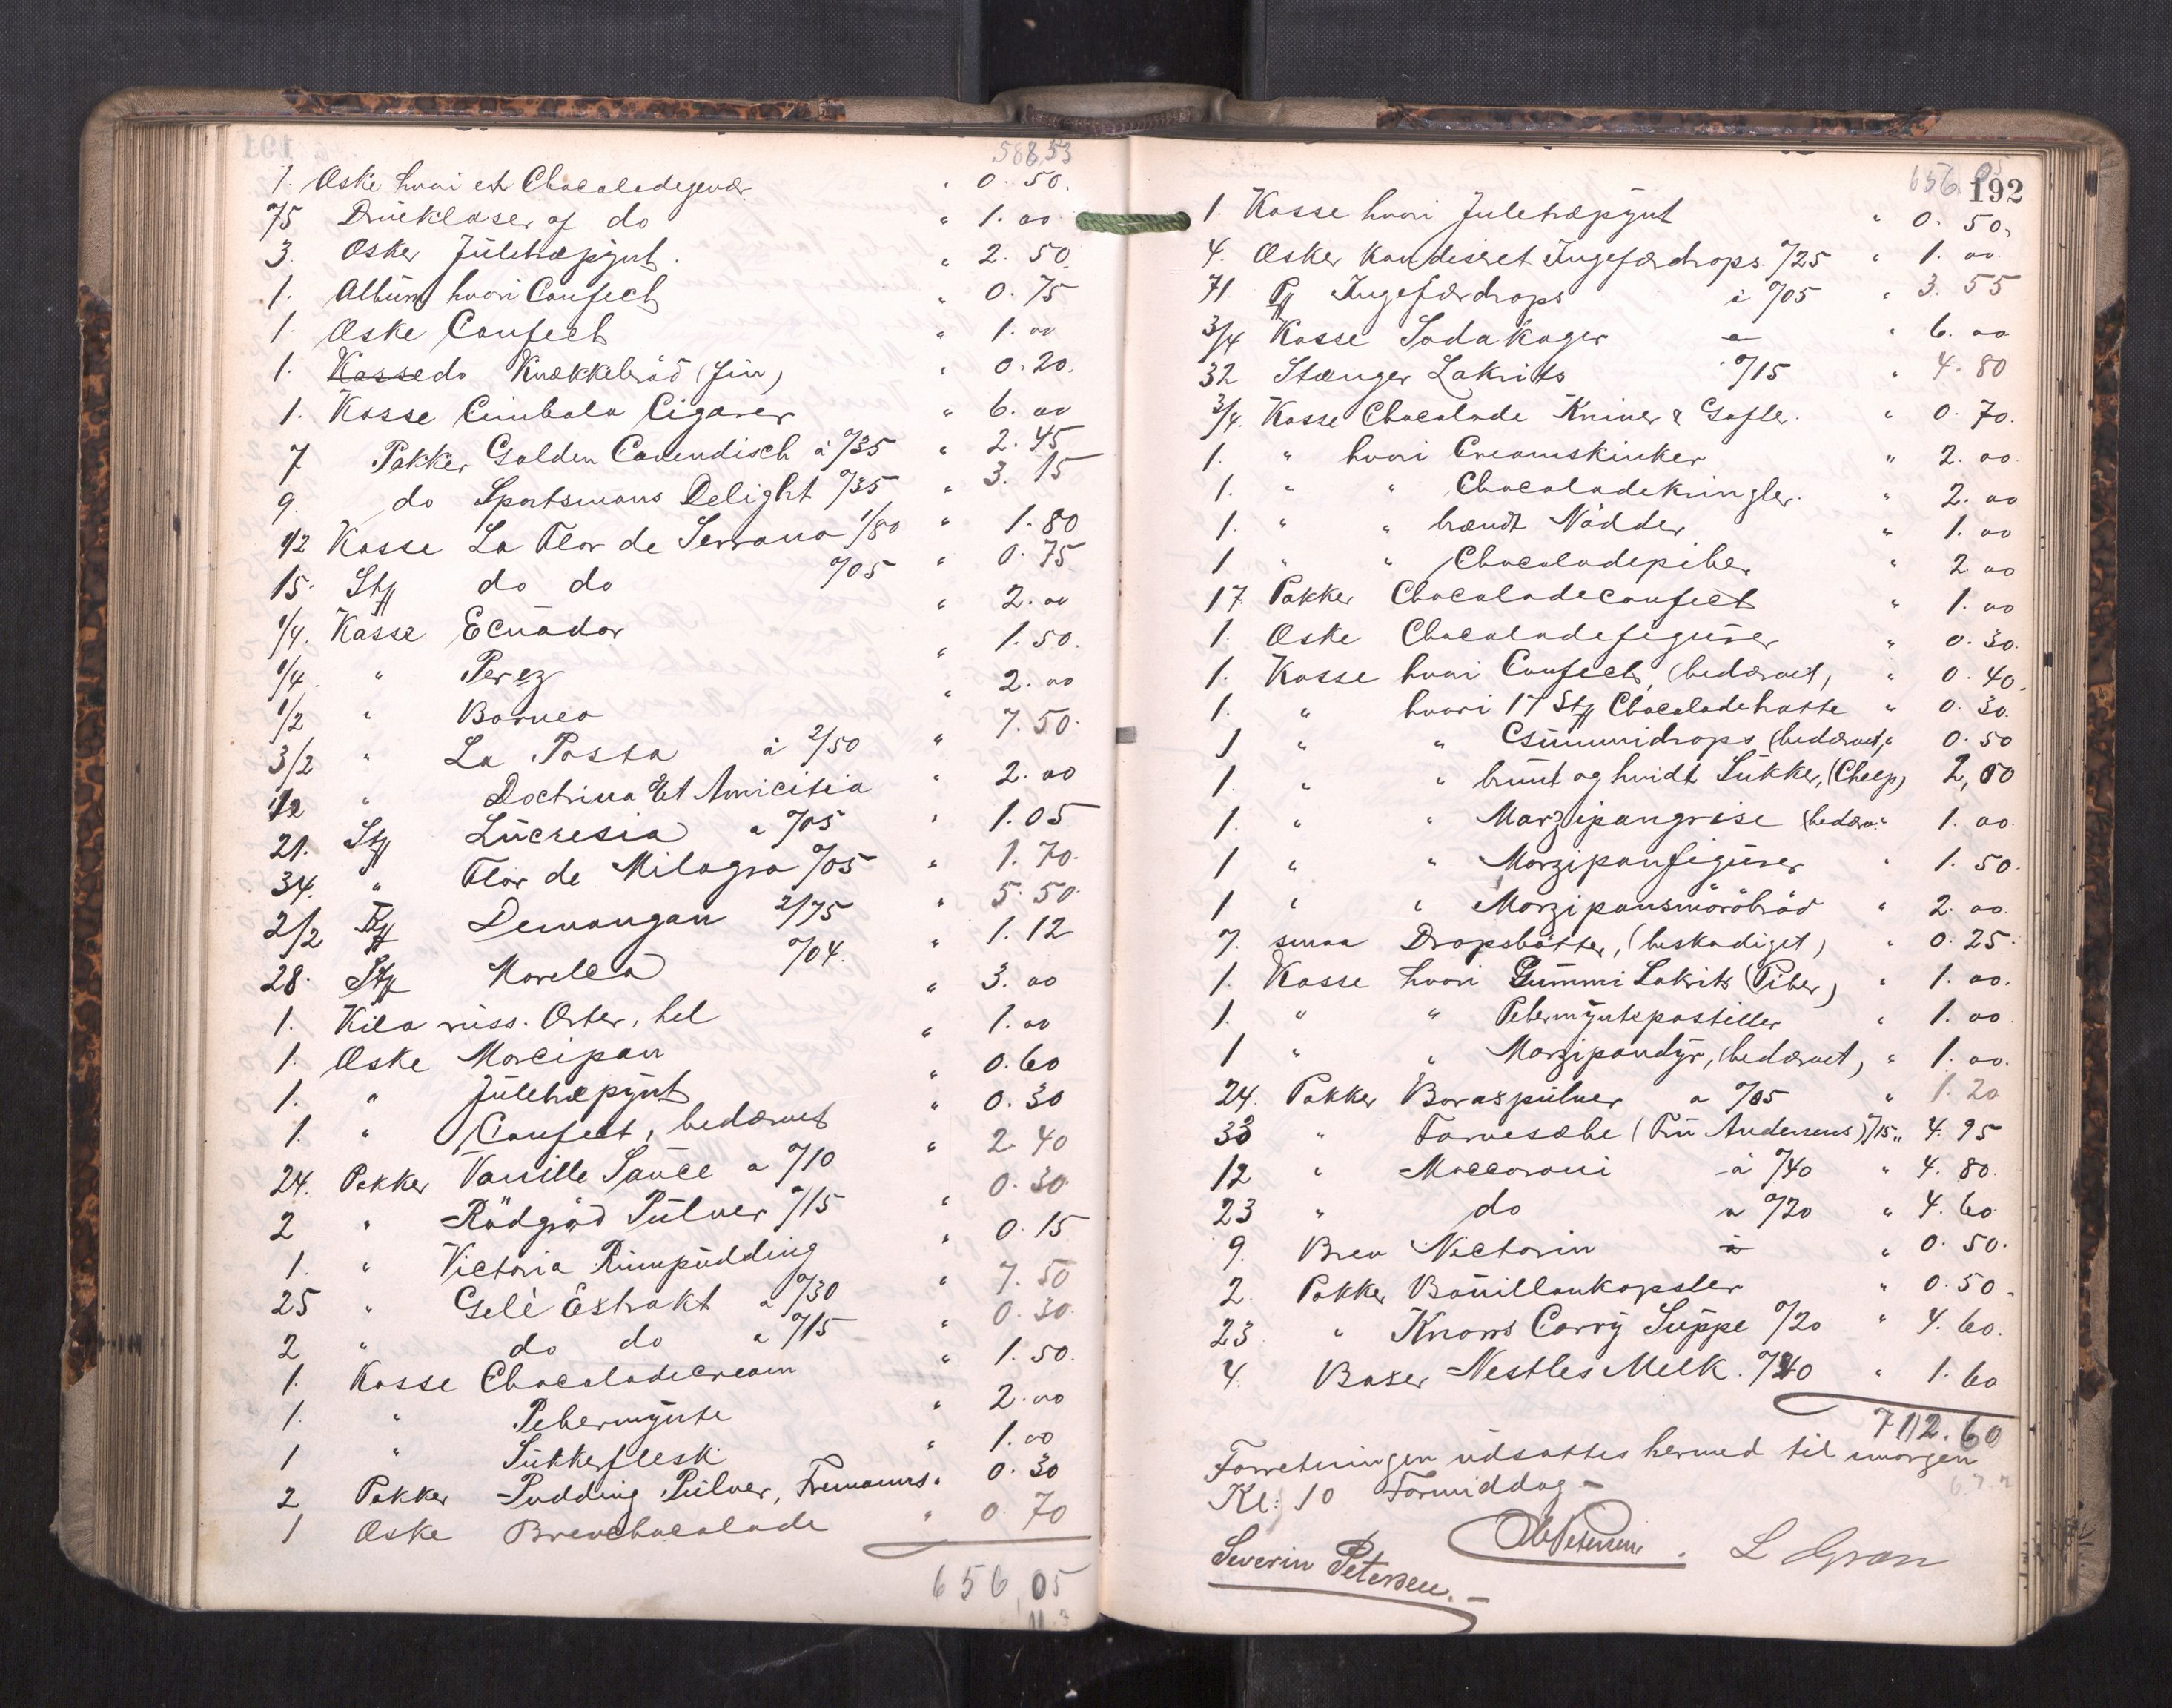 588,53
1. Æske hvori et Chocoladegevær " 0. 50.
75 Drueklaser af do " 1. 00
3. Æsker Juletræpynt. " 2. 50.
1. Album hvori Confect " 0. 75
1. Æske Confect " 1. 00
1. Kasse do Knækkebröd (fin) " 0. 20.
1. Kasse Cimbala Cigarer " 6. 00
7 Pakker Golden Cavendisch à 0/35 " 2. 45
9. do Sportsmans Delight 0/35 " 3. 15
1/2 Kasse La Flor de Serrano 1/80 " 1. 80
15. Stk do do 0/05 " 0. 75
1/4. Kasse Ecuador " 2. 00
1/4. " Perez " 1. 50.
1/2 " Borneo " 2. 00
3/2 " La Posta à 2/50 " 7. 50.
1/2 " Doctrina Et Amicitia " 2. 00
21. Stk Lucresia a 0/05 " 1. 05
34. " Flor de Milagro 0/05 " 1. 70.
2/2 Demangan 2/75 " 5. 50.
28. Stk Morella 0/04. " 1. 12
1. Kilo russ. Erter, hel " 3. 00
1. Æske Marcipan " 1. 00
1. " Juletræpynt " 0. 60
1. " Confect, bedærvet " 0. 30
24. Pakker Vanille Sauce a 0/10 " 2. 40
2 " Rödgröd Pulver 0/15 " 0. 30
1. " Victoria Rumpudding " 0. 15
25 " Gelè Extrakt a 0/30 " 7. 50
2 " do do a 0/15 " 0. 30.
1. Kasse Chocoladecream " 1. 50.
1. " Pebermynte " 2. 00
1 " Sukkerflesk " 1. 00
2 Pakker Pudding Pulver, Fremanns. 0. 30
1 Æske Brevchocolade " 0 70
656,05
656.05
192
1. Kasse hvori Juletræpynt " 0. 50,
4. Æsker Kandiseret Ingefærdrops. 0/25 " 1. 00.
71 Pk Ingefærdrops à 0/05 " 3. 55
3/4 Kasse Sodakager a " 6. 00
32 Stænger Lakrits 0/15 " 4. 80
3/4. Kasse Chocolade Kniver & Gafler. " 0. 70.
1. " hvori Creamskinker " 2. 00.
1. " " Chocoladekringler. " 2. 00
1. " " brændt Nödder " 1. 00
1 " " Chocoladepiber " 2. 00
17 Pakker Chocoladeconfect " 1. 00
1. Æske Chocoladefigurer " 0. 30.
1. Kasse hvori Confect, (bedærvet, " 0. 40.
1. " hvori 17 Stk Chocoladehatte " 0. 30.
1 " " Gummidrops (bedærvet, " 0. 50
1. " " brunt og hvidt Sukker, (Cheep) 2,00
1. " " Marzipangrise (bedærv. " 1. 00.
1 " " Marzipanfigurer " 1. 50.
1 " " Marzipansmörbröd " 2. 00.
7. smaa Dropsbötter, (beskadiget) " 0. 25.
1. Kasse hvori Gummi Lakrits (Piber) " 1. 00.
1. " " Pebermyntepastiller " 1. 00.
1 " " Marzipandyr, (bedærvet, " 1. 00.
24. Pakker Boraxpulver a 0/05 " 1. 20
33 " Farvesæbe (Fru Andersens) 0/15 " 4. 95
12 " Maccaroni à 0/40 " 4. 80.
23 " do a 0/20 " 4. 60
9. Brev Victorin à " 0. 50.
2. Pakker Bouillonkapsler " 0. 50.
23 " Knorrs Carry Suppe 0/20 " 4. 60.
4. Boxer Nestles Melk. 0/40 " 1. 60
712.60
Forretningen udsattes hermed til imorgen
Kl: 10 Formiddag -
Severin Petersen. L Gran